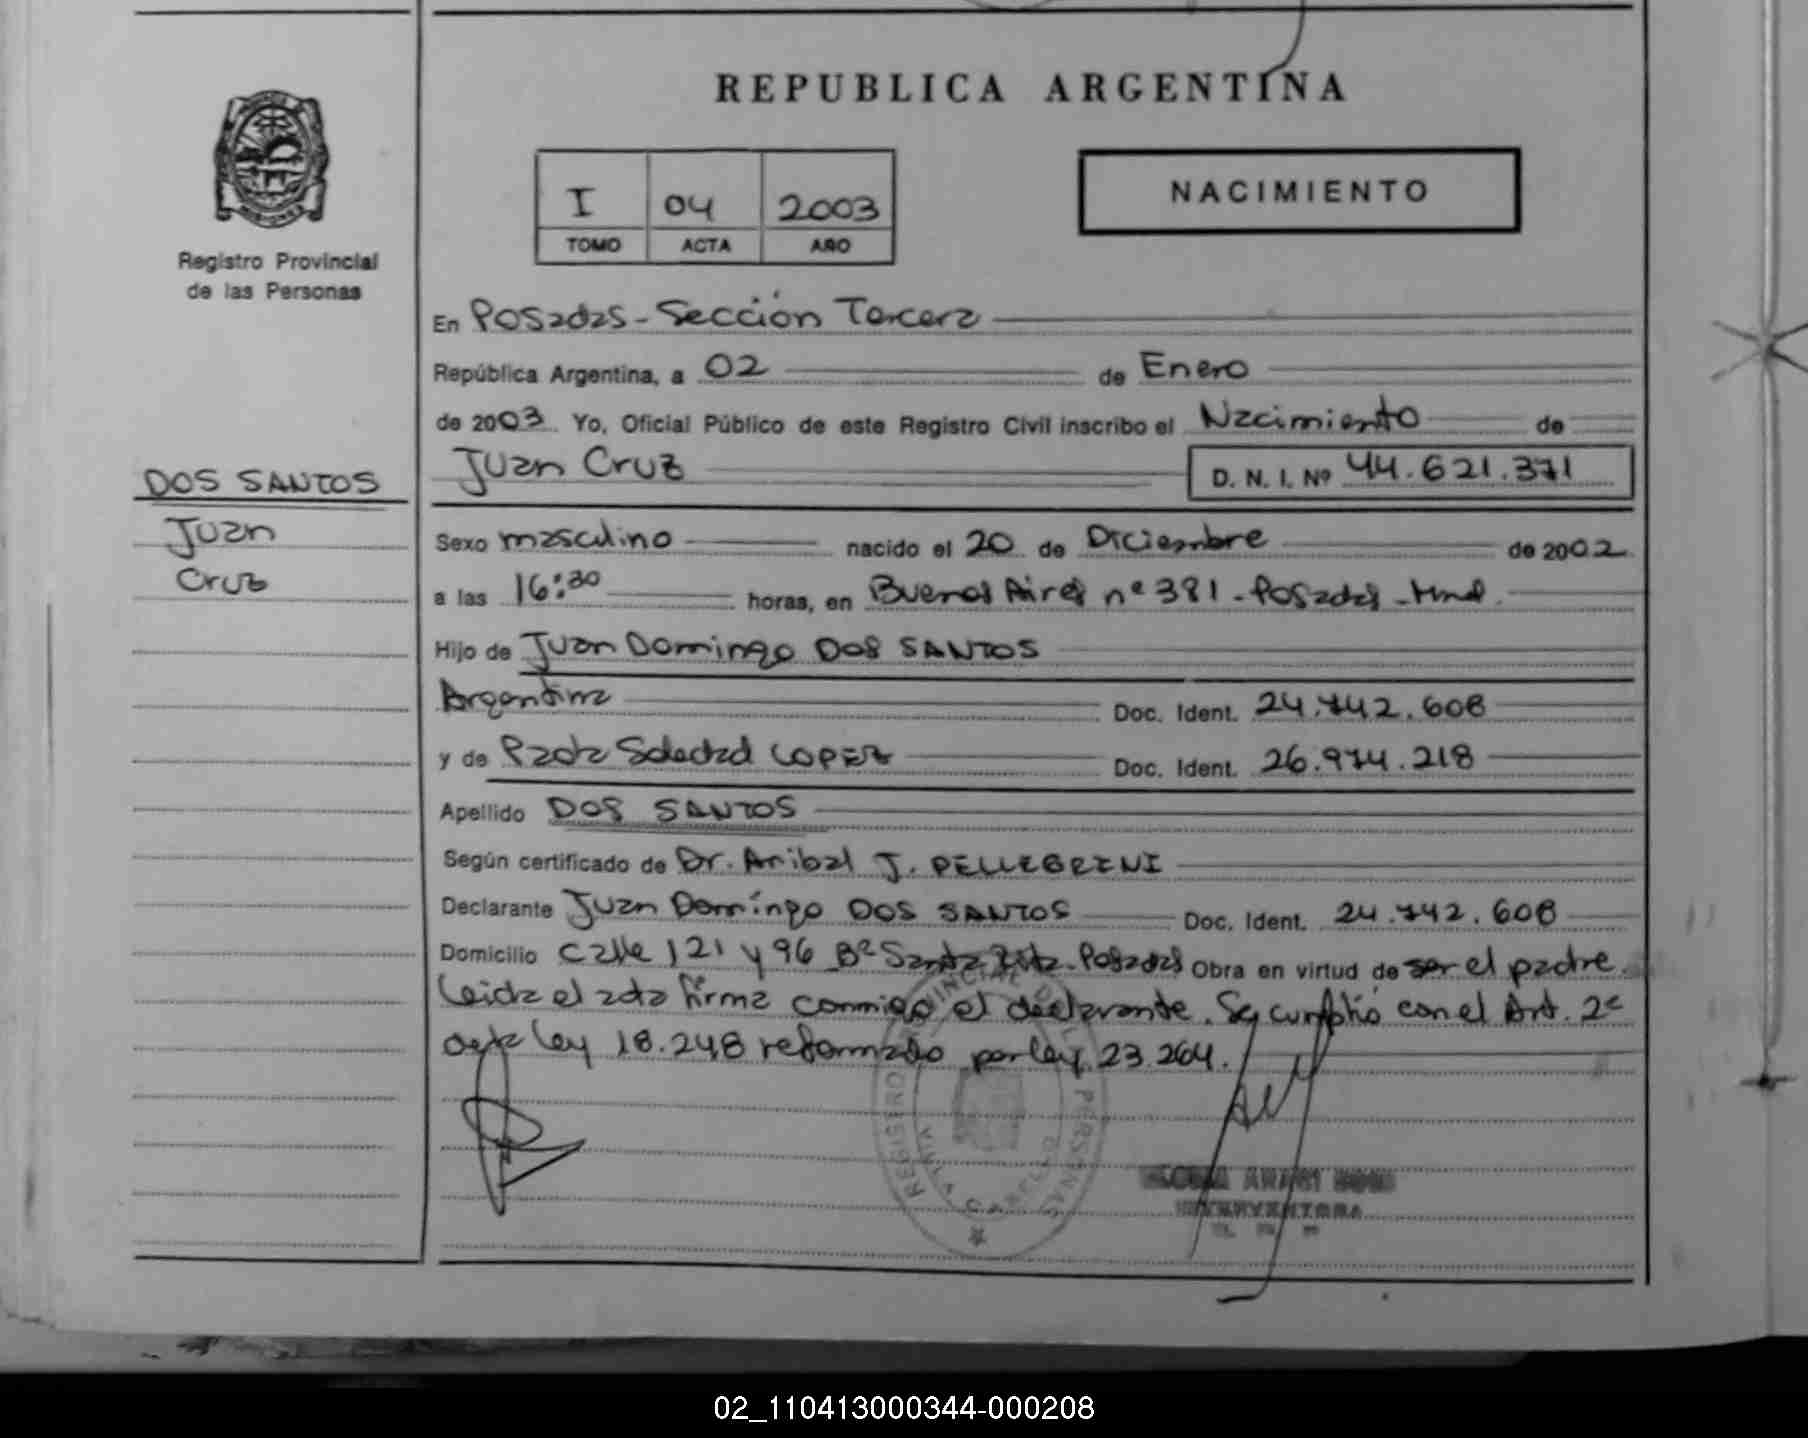 REPUBLICA ARGENTINA
I 04 2003
TOMO ACTA AÑO
NACIMIENTO
Registro Provincial
de las Personas
DOS SANTOS
Juan
Cruz
En Posadas - Sección Tercera
República Argentina, a 02 de Enero
de 2003 Yo, Oficial Público de este Registro Civil inscribo el Nacimiento de
Juan Cruz D. N. I. Nº 44.621.371
Sexo masculino nacido el 20 de Diciembre de 2002
a las 16:30 horas, en Buenos Aires nº 381 - Posadas - Mnes.
Hijo de Juan Domingo DOS SANTOS
Argentina Doc. Ident. 24.742.608
y de Paola Soledad LOPEZ Doc. Ident. 26.974.218
Apellido DOS SANTOS
Según certificado de Dr. Anibal J. PELLEGRINI
Declarante Juan Domingo DOS SANTOS Doc. Ident. 24.742.608
Domicilio Calle 121 y 96 Bº Santa Rita - Posadas Obra en virtud de ser el padre.
Leida el acta firma conmigo el declarante. Se cumplió con el Art. 2º
de la ley 18.248 reformado por ley 23.264.
REGISTRO PROVINCIAL DE LAS PERSONAS
VILLA CABELLO
INTERVENTORA
02_110413000344-000208